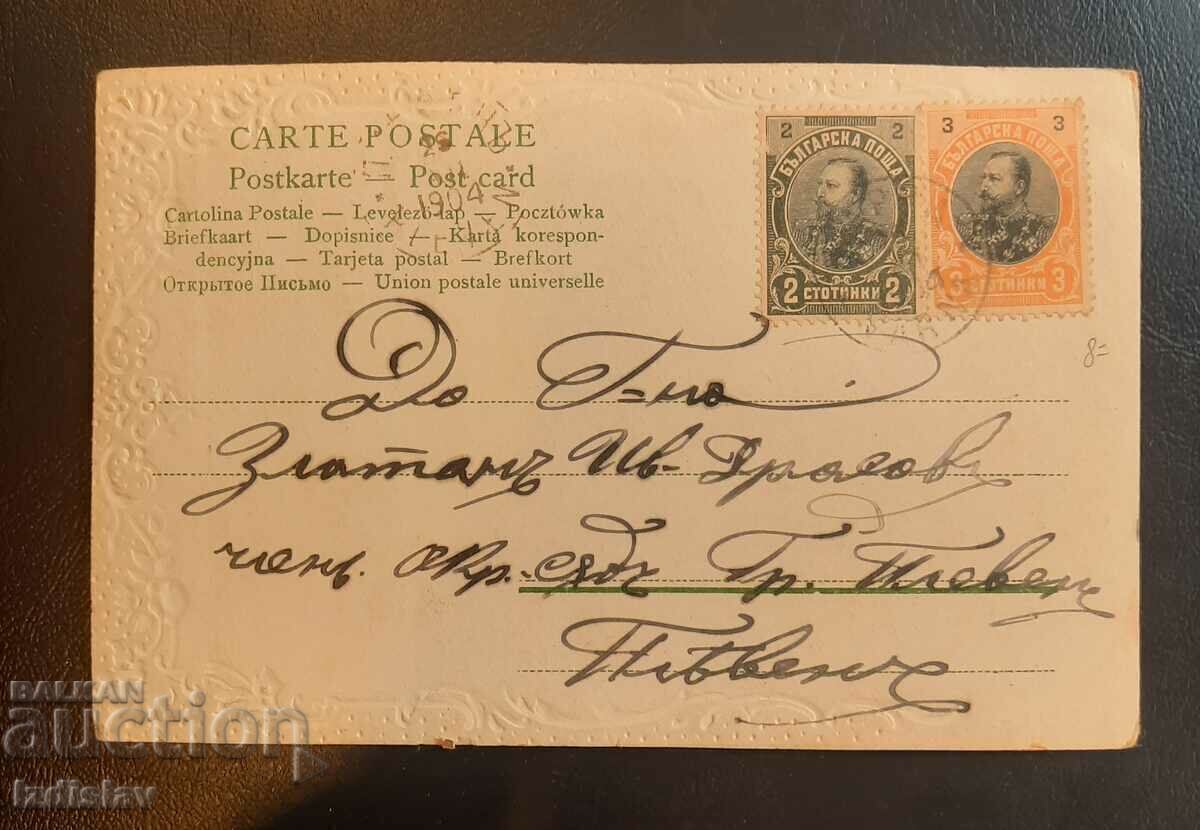 CARTE POSTALE
Postkarte — Post card
Cartolina Postale — Levelező-lap — Pocztówka
Briefkaart — Dopisnice — Karta korespon-
dencyjna — Tarjeta postal — Brefkort
Открытое Письмо — Union postale universelle
1904
2 2
БЪЛГАРСКА ПОЩА
2 СТОТИНКИ 2
3 3
БЪЛГАРСКА ПОЩА
3 СТОТИНКИ 3
8=
До Г-на
Златанъ Ив. Драсов
член. окр. съдъ Гр. Плевенъ
Плѣвенъ
BALKAN
auction
ladislav